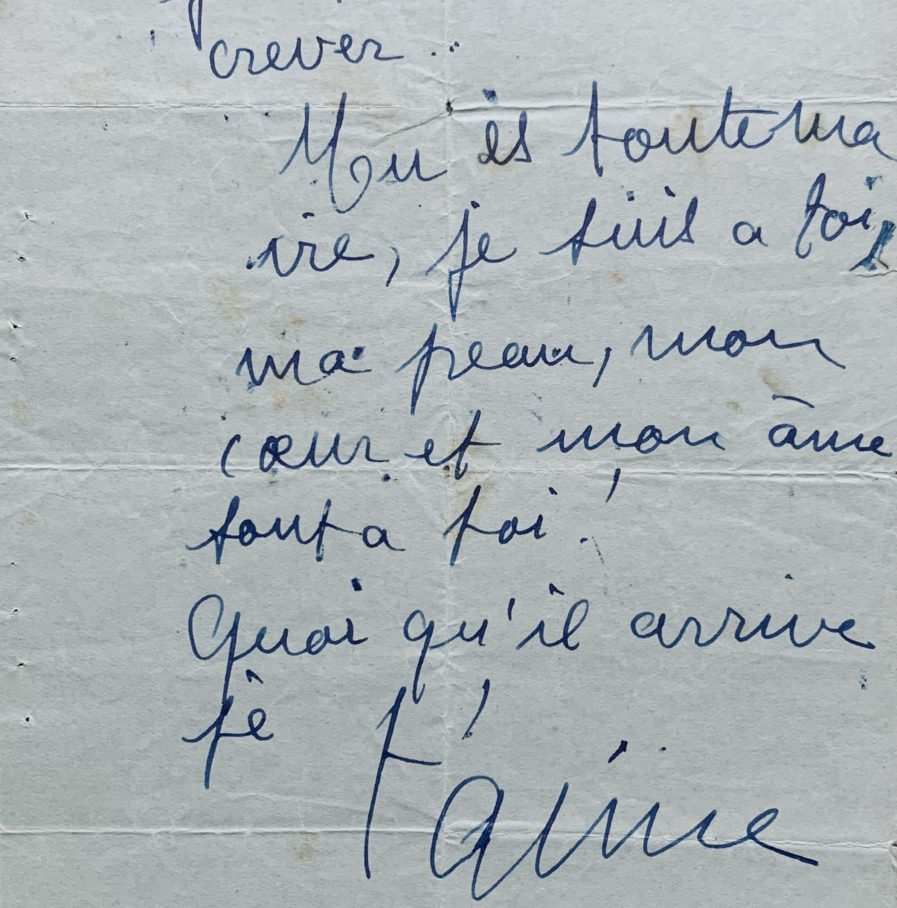 crever..
Tu es toute ma
vie, je suis a toi,
ma peau, mon
cœur et mon âme
sont a toi!
Quoi qu'il arrive
je t'aime